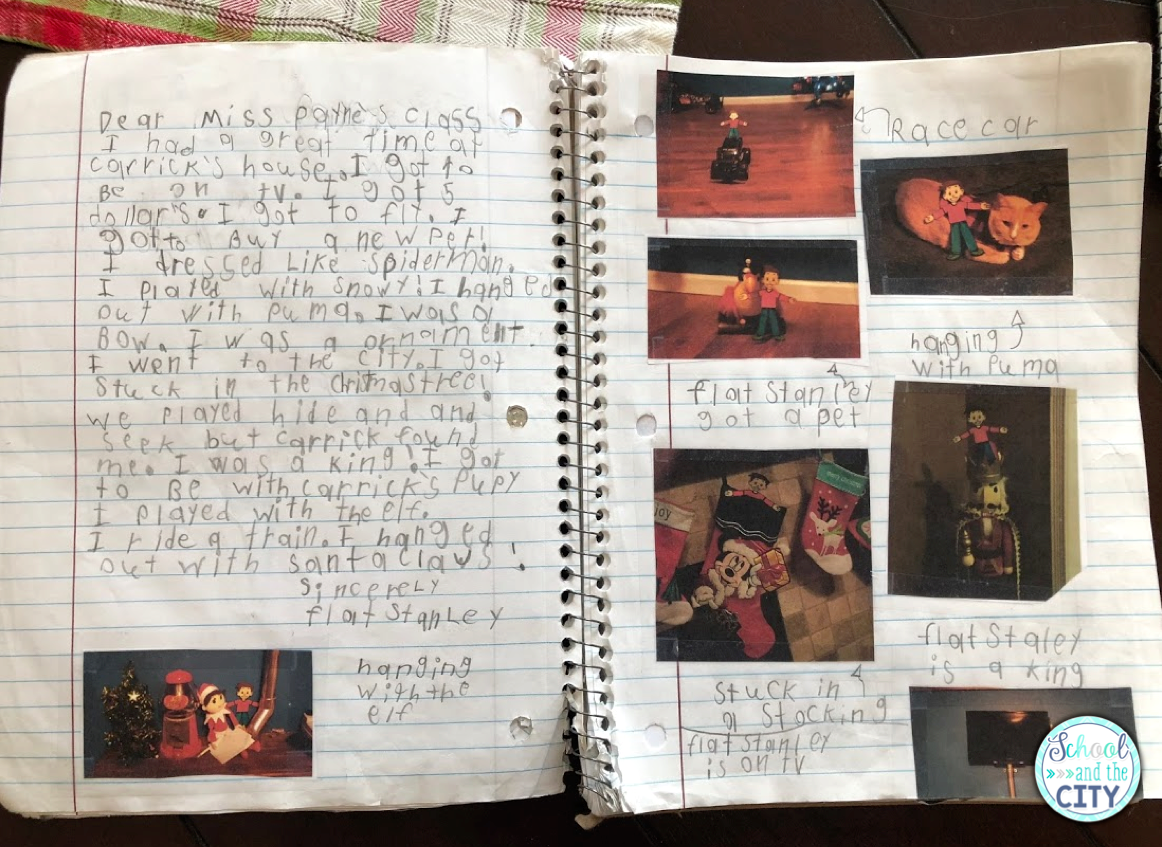 Dear Miss Payne's class
I had a great time at
carrick's house. I got to
Be on tv. I got 5
dollar's. I got to fit. I
got to Buy a new Pet!
I dressed Like Spiderman.
I played with Snowy! I hanged
out with Puma. I was a
Bow. I was a ornament.
I went to the city. I got
Stuck in the Christmas tree!
we played hide and and
Seek but carrick found
me. I was a king! I got
to Be with carrick's Pupy
I played with the elf.
I ride a train. I hanged
out with santa claus!
Sincerely
flat Stanley
hanging
with the
elf
Race car
hanging
with Puma
flat Stanley
got a pet
joy
flat Staley
is a king
Stuck in
a Stocking
flat Stanley
is on tv
School
and the
CITY